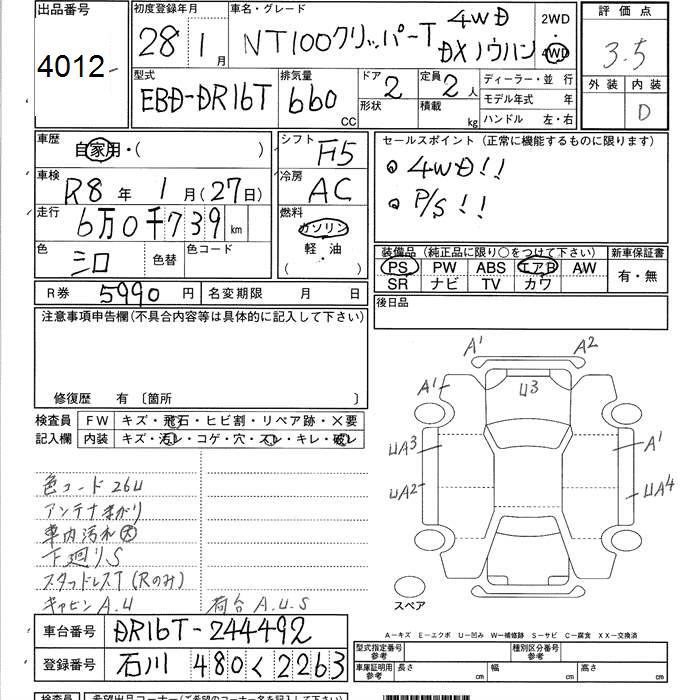 出品番号
4012
初度登録年月
28年 1月
車名・グレード
NT100クリッパーT 4WD DXノウハン
2WD
4WD
評価点
3.5
外装 内装
D
型式
EBD-DR16T
排気量
660 CC
ドア 2
形状
定員 2人
積載 kg
ディーラー・並行
モデル年式 年
ハンドル 左・右
車歴
自家用・( )
車検
R8年 1月(27日)
走行
6万0千739km
色
シロ
色替
色コード
シフト
F5
冷房
AC
燃料
ガソリン
軽・油
( )
セールスポイント(正常に機能するものに限ります)
◎ 4WD!!
◎ P/S!!
装備品(純正品に限り○をつけて下さい)
新車保証書
PS PW ABS エアB AW
SR ナビ TV カワ
有・無
後日品
R券 5990円
名変期限 月 日
注意事項申告欄(不具合内容等は具体的に記入して下さい)
修復歴 有〔箇所 〕
検査員 FW キズ・飛石・ヒビ割・リペア跡・×要
記入欄 内装 キズ・汚レ・コゲ・穴・スレ・キレ・破レ
色コード 26U
アンテナまがり
車内汚れ大
下廻りS
スタッドレスT(Rのみ)
キャビン A.U
荷台 A.U.S
A1 A2
A1 U3
UA3 A1
UA2 UA4
スペア
A…キズ E…エクボ U…凹み W…補修跡 S…サビ C…腐食 XX…交換済
車台番号 DR16T-244492
登録番号 石川 480く2263
型式指定番号
参考
種別区分番号
参考
車庫証明用
参考
長さ cm 幅 cm 高さ cm
検査員 希望出品コーナー